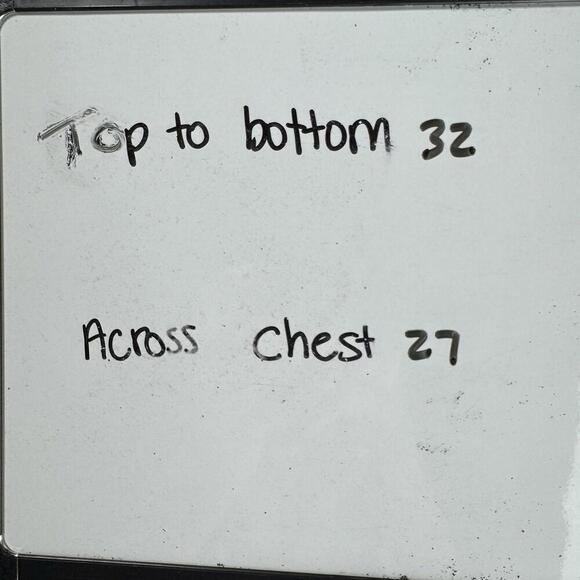 Top to bottom 32
Across Chest 27